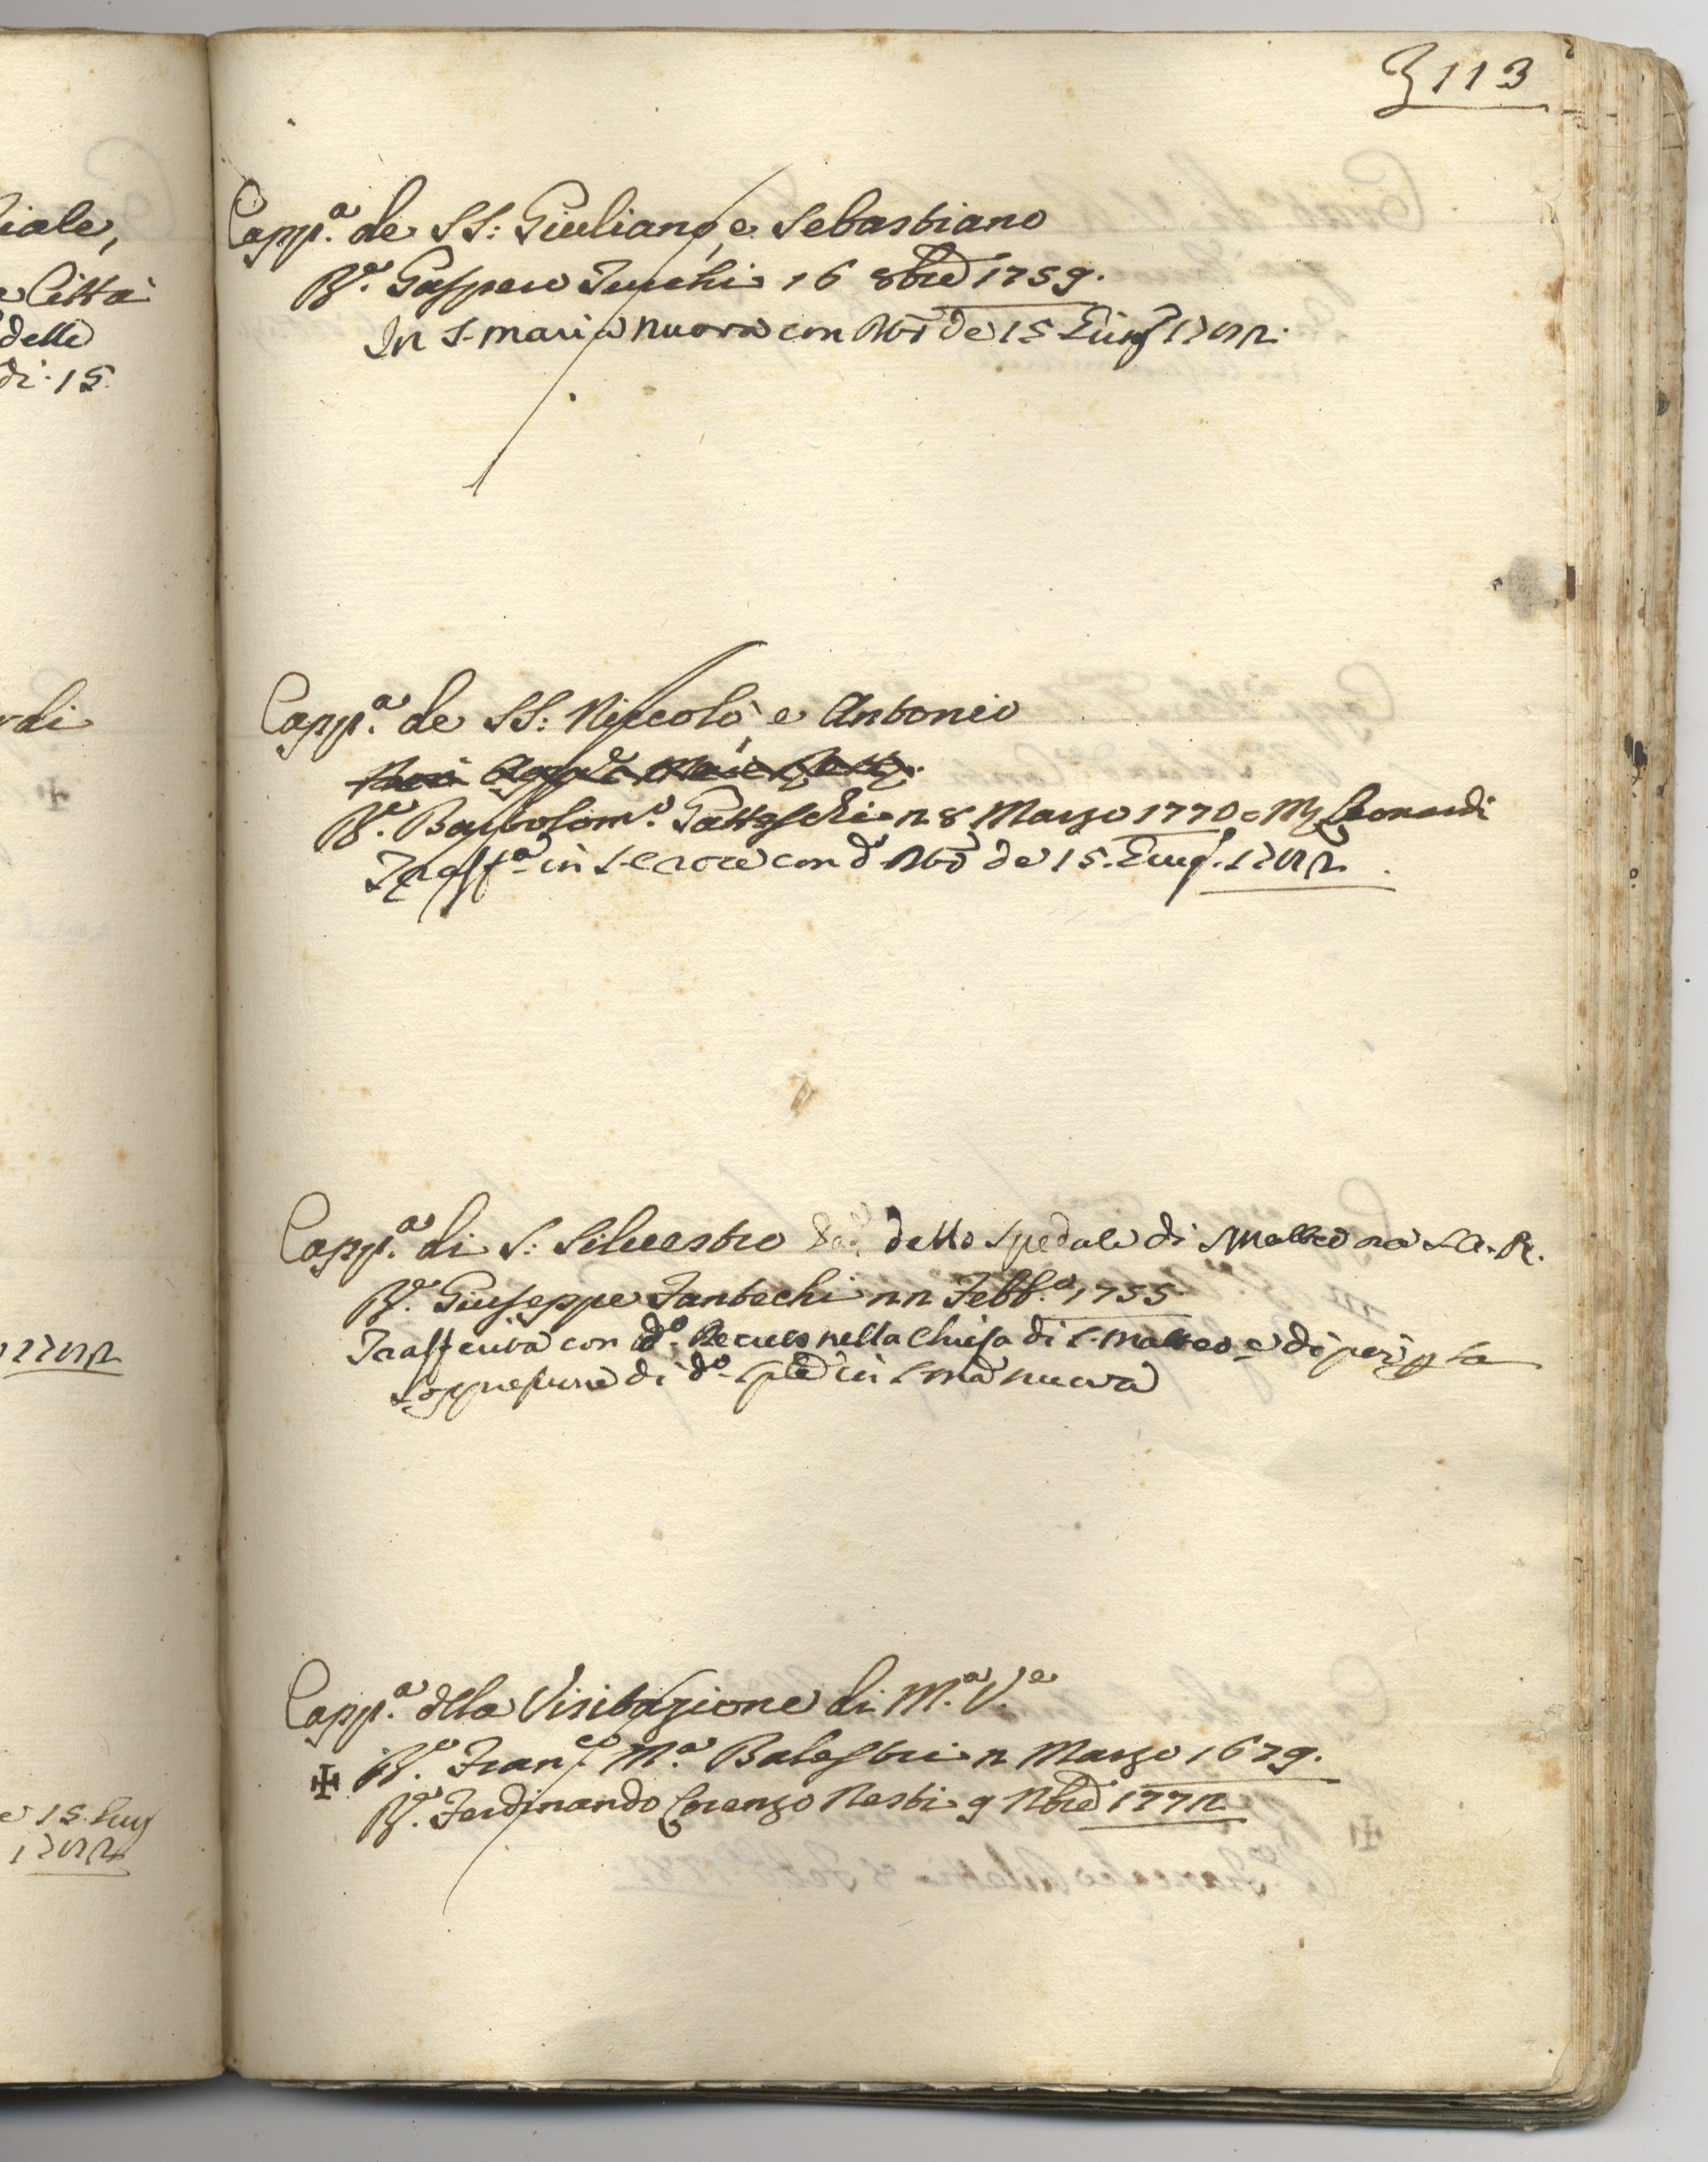 iale,
e Città
delle
di 15.
rdi
1782
e 15. Lug
1782
113
Capp.a de SS: Giuliano, e Sebastiano
R.e Gaspero 16 8bre 1759.
In S. Maria Nuova con de 15 1782.
Capp.a de SS: Niccolò, e Antonio
R.e Bartolom.o Gatteschi 28 Marzo 1770 Leonardi
Trasf.a in S. Croce con d.o de 15. 1782
Capp.a di S: Silvestro detto Spedale di S Matteo S.A.R.
R.e Giuseppe Fantechi 22 Febb.o 1755
Trasferita con d.o Decreto nella Chiesa di S. Matteo e di poi p la
soppressione di d.o Sple in S Ma nuova
Capp.a della Visitazione di M.a V.e
✠ R.e Fran.co M.a Balestri 2 Marzo 1679.
R.e Ferdinando Lorenzo Resti 9 Nbre 1772